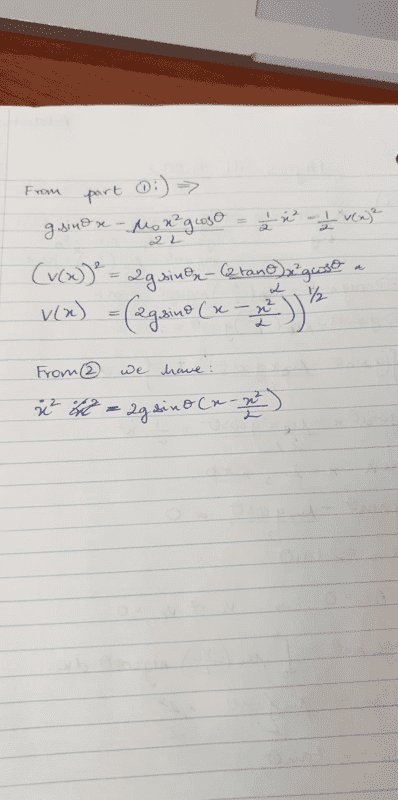 From part ①:) ⇒
g sinθ x - μ₀x²g cosθ / 2L = 1/2 ẋ² - 1/2 v(x)²
(v(x))² = 2g sinθx - (2tanθ)x²g cosθ / L
v(x) = (2g sinθ (x - x²/L))^1/2
From ② we have:
ẋ² = 2g sinθ (x - x²/L)